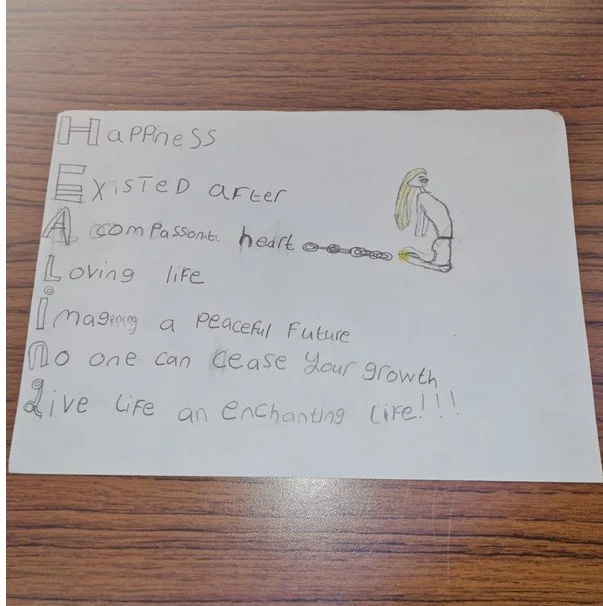 HaPPineSS
ExisTeD aFTer
A comPassont heart
Loving life
Imagening a Peaceful Future
No one can cease your growth
Live LiFe an enchanting LiFe!!!